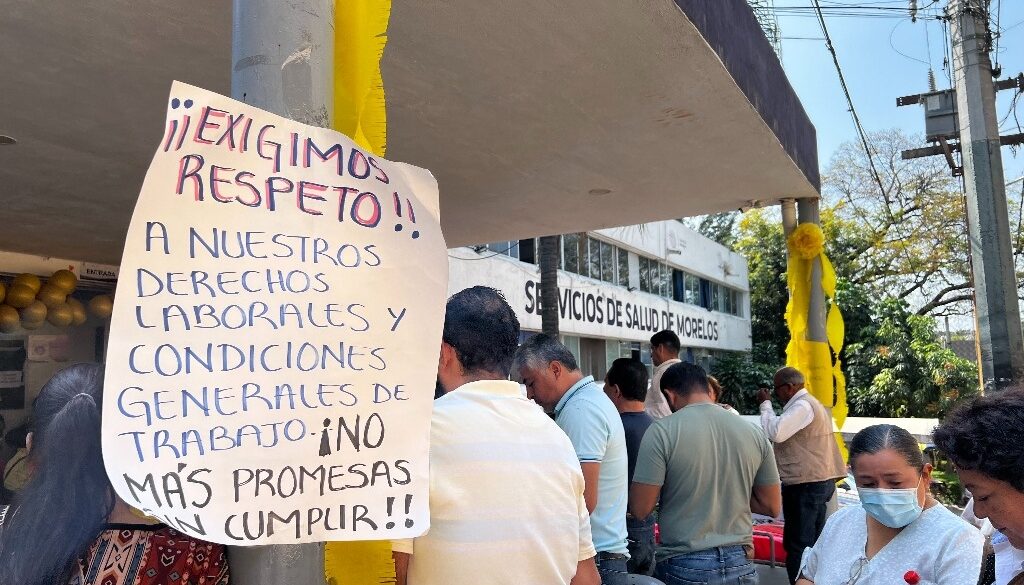 ¡¡EXIGIMOS
RESPETO!!
A NUESTROS
DERECHOS
LABORALES Y
CONDICIONES
GENERALES DE
TRABAJO. ¡NO
MÁS PROMESAS
SIN CUMPLIR!!
ENTRADA
SERVICIOS DE SALUD DE MORELOS